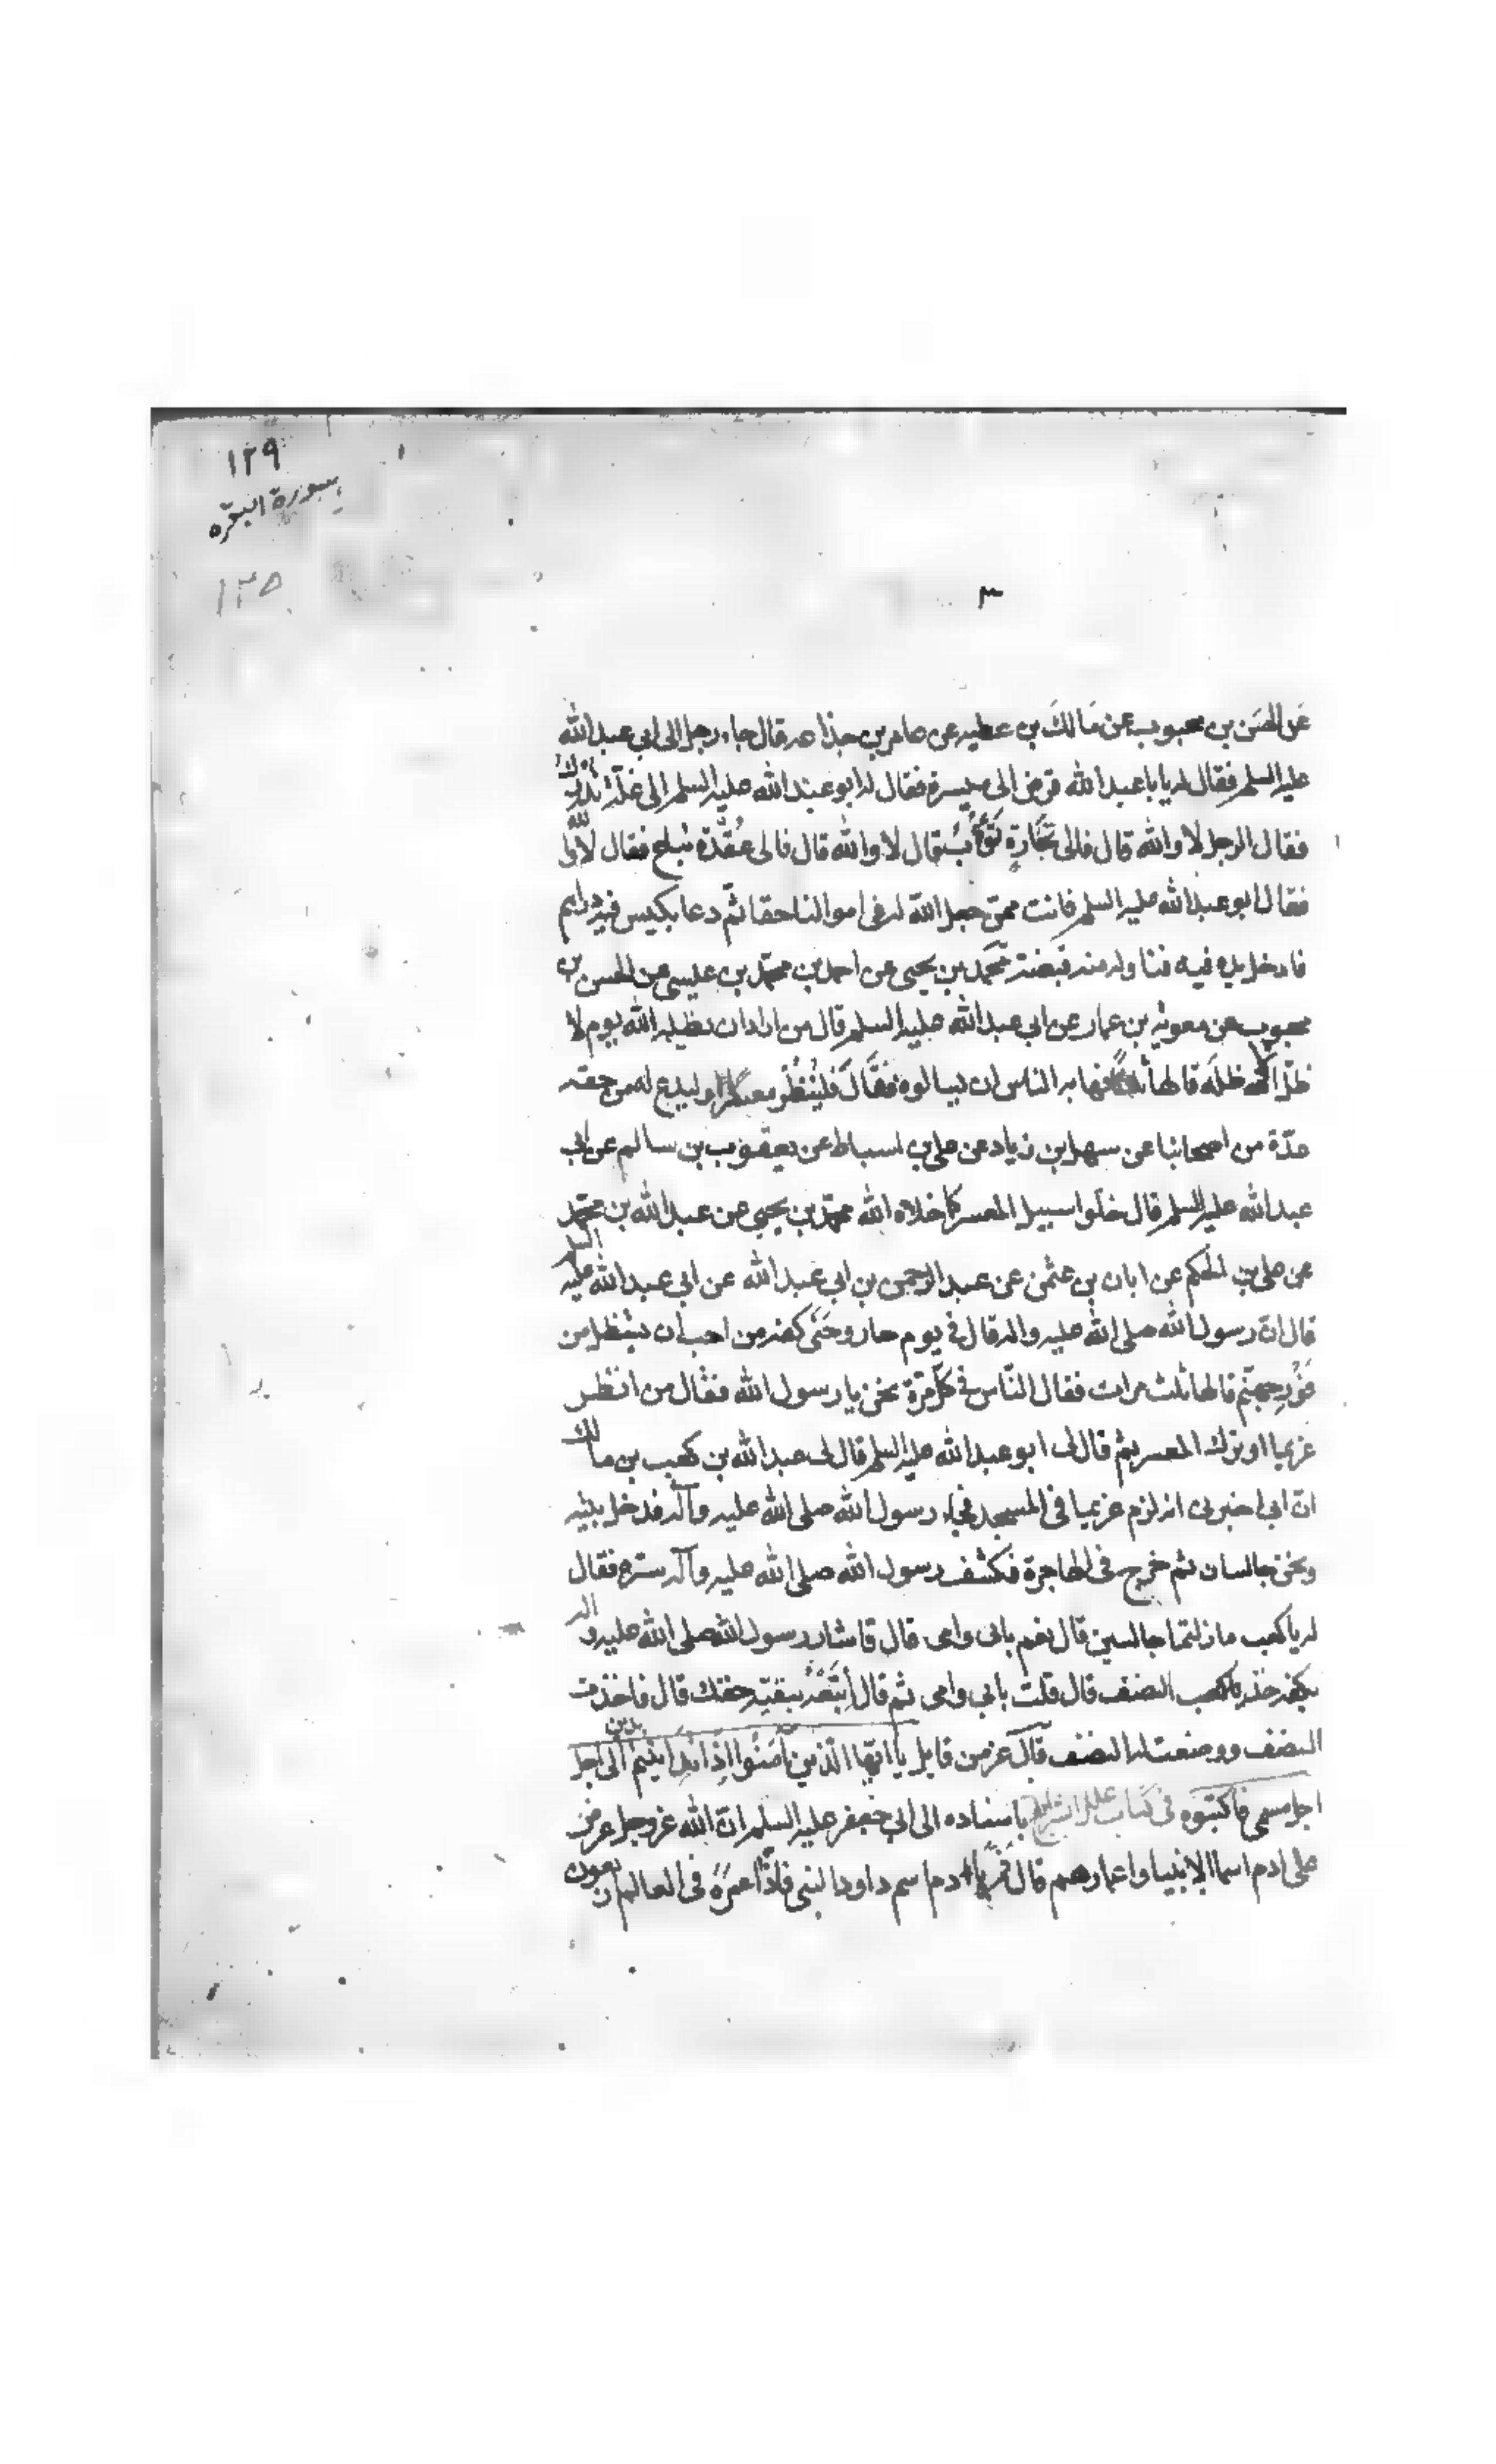 ١٢٩
سورة البقره
١٣٥
٣
عَن الحسَن بن محبوب عن مَالكَ بن عطيه عن عامر بن جذاعه قال جاء رجل الى ابي عبد الله
عليه السلم فقال له يا با عبد الله قرض الى ميسرة فقال له ابو عبد الله عليه السلم الى غلّة تدرك
فقال الرجل لا والله قال فالى تجَارةٍ تَؤُبُ قال لا والله قال فالى عُقْدَة تباع فقال لا والله
فقال ابو عبد الله عليه السلم فانت ممن جعل الله له فى اموالنا حقا ثم دعا بكيس فيه دراهم
فادخل يده فيه فناوله منه قبضة محَمد بن يحيى عن احمد بن محمّد بن عيسى عن الحسن بن
محبوب عن معويه بن عمار عن ابي عبد الله عليه السلم قال من اراد ان يظله الله يوم لا
ظلّ الا ظلّه قالها ثلثا فهابه الناس ان يسالوه فقَالَ فليُنْظُر معسرًا او ليدع له من حقه
عدّة من اصحابنا عن سهل بن زياد عن على بن اسباط عن يعقوب بن سالم عن ابي
عبد الله عليه السلم قال خلّوا سبيل المعسر كما خلاه الله محمّد بن يحيى عن عبد الله بن محمّد
عن على بن الحكم عن ابان بن عثمن عن عبد الرحمن بن ابي عبد الله عن ابي عبد الله عليه السلم
قال ان رسول الله صلى الله عليه واله قال فى يوم حار وحَنى كفه من احب ان يستظل من
فَوْرِ جهنّم قالها ثلث مرات فقال النّاس فى كلّ مّرة نحن يا رسول الله فقال من انظر
غريما او ترك المعسر ثم قال لى ابو عبد الله عليه السلم قال لى عبد الله بن كعب بن مالك
ان ابى اخبرنى انه لزم غريما فى المسجد فجاء رسول الله صلى الله عليه وآله فدخل بيته
ونحن جالسان ثم خرج فى الهاجرة فكشف رسول الله صلى الله عليه وآله ستره فقال
له يا كعب ما زلتما جالسين قال نعم بابى وامى قال فاشار رسول الله صلى الله عليه واله
بكفه خذ يا كعب النصف قال قلت بابي وامى ثم قال اَتبعْهُ ببقيّة حقك قال فاخذت
النصف ووضعت له النصف قاَلَ عز من قايل يا ايّها الّذينَ آمَنُوا اِذَا تَدايَنْتم بدين الى اجل
اجل مسمى فاكتبوه فى كتاب علل الشرايع باسناده الى ابى جعفر عليه السلم ان الله عز وجل عرض
على ادم اسما الانبيا واعمارهم قال فمر بادم اسم داود النبى فاذًا عمره فى العالم اربعون